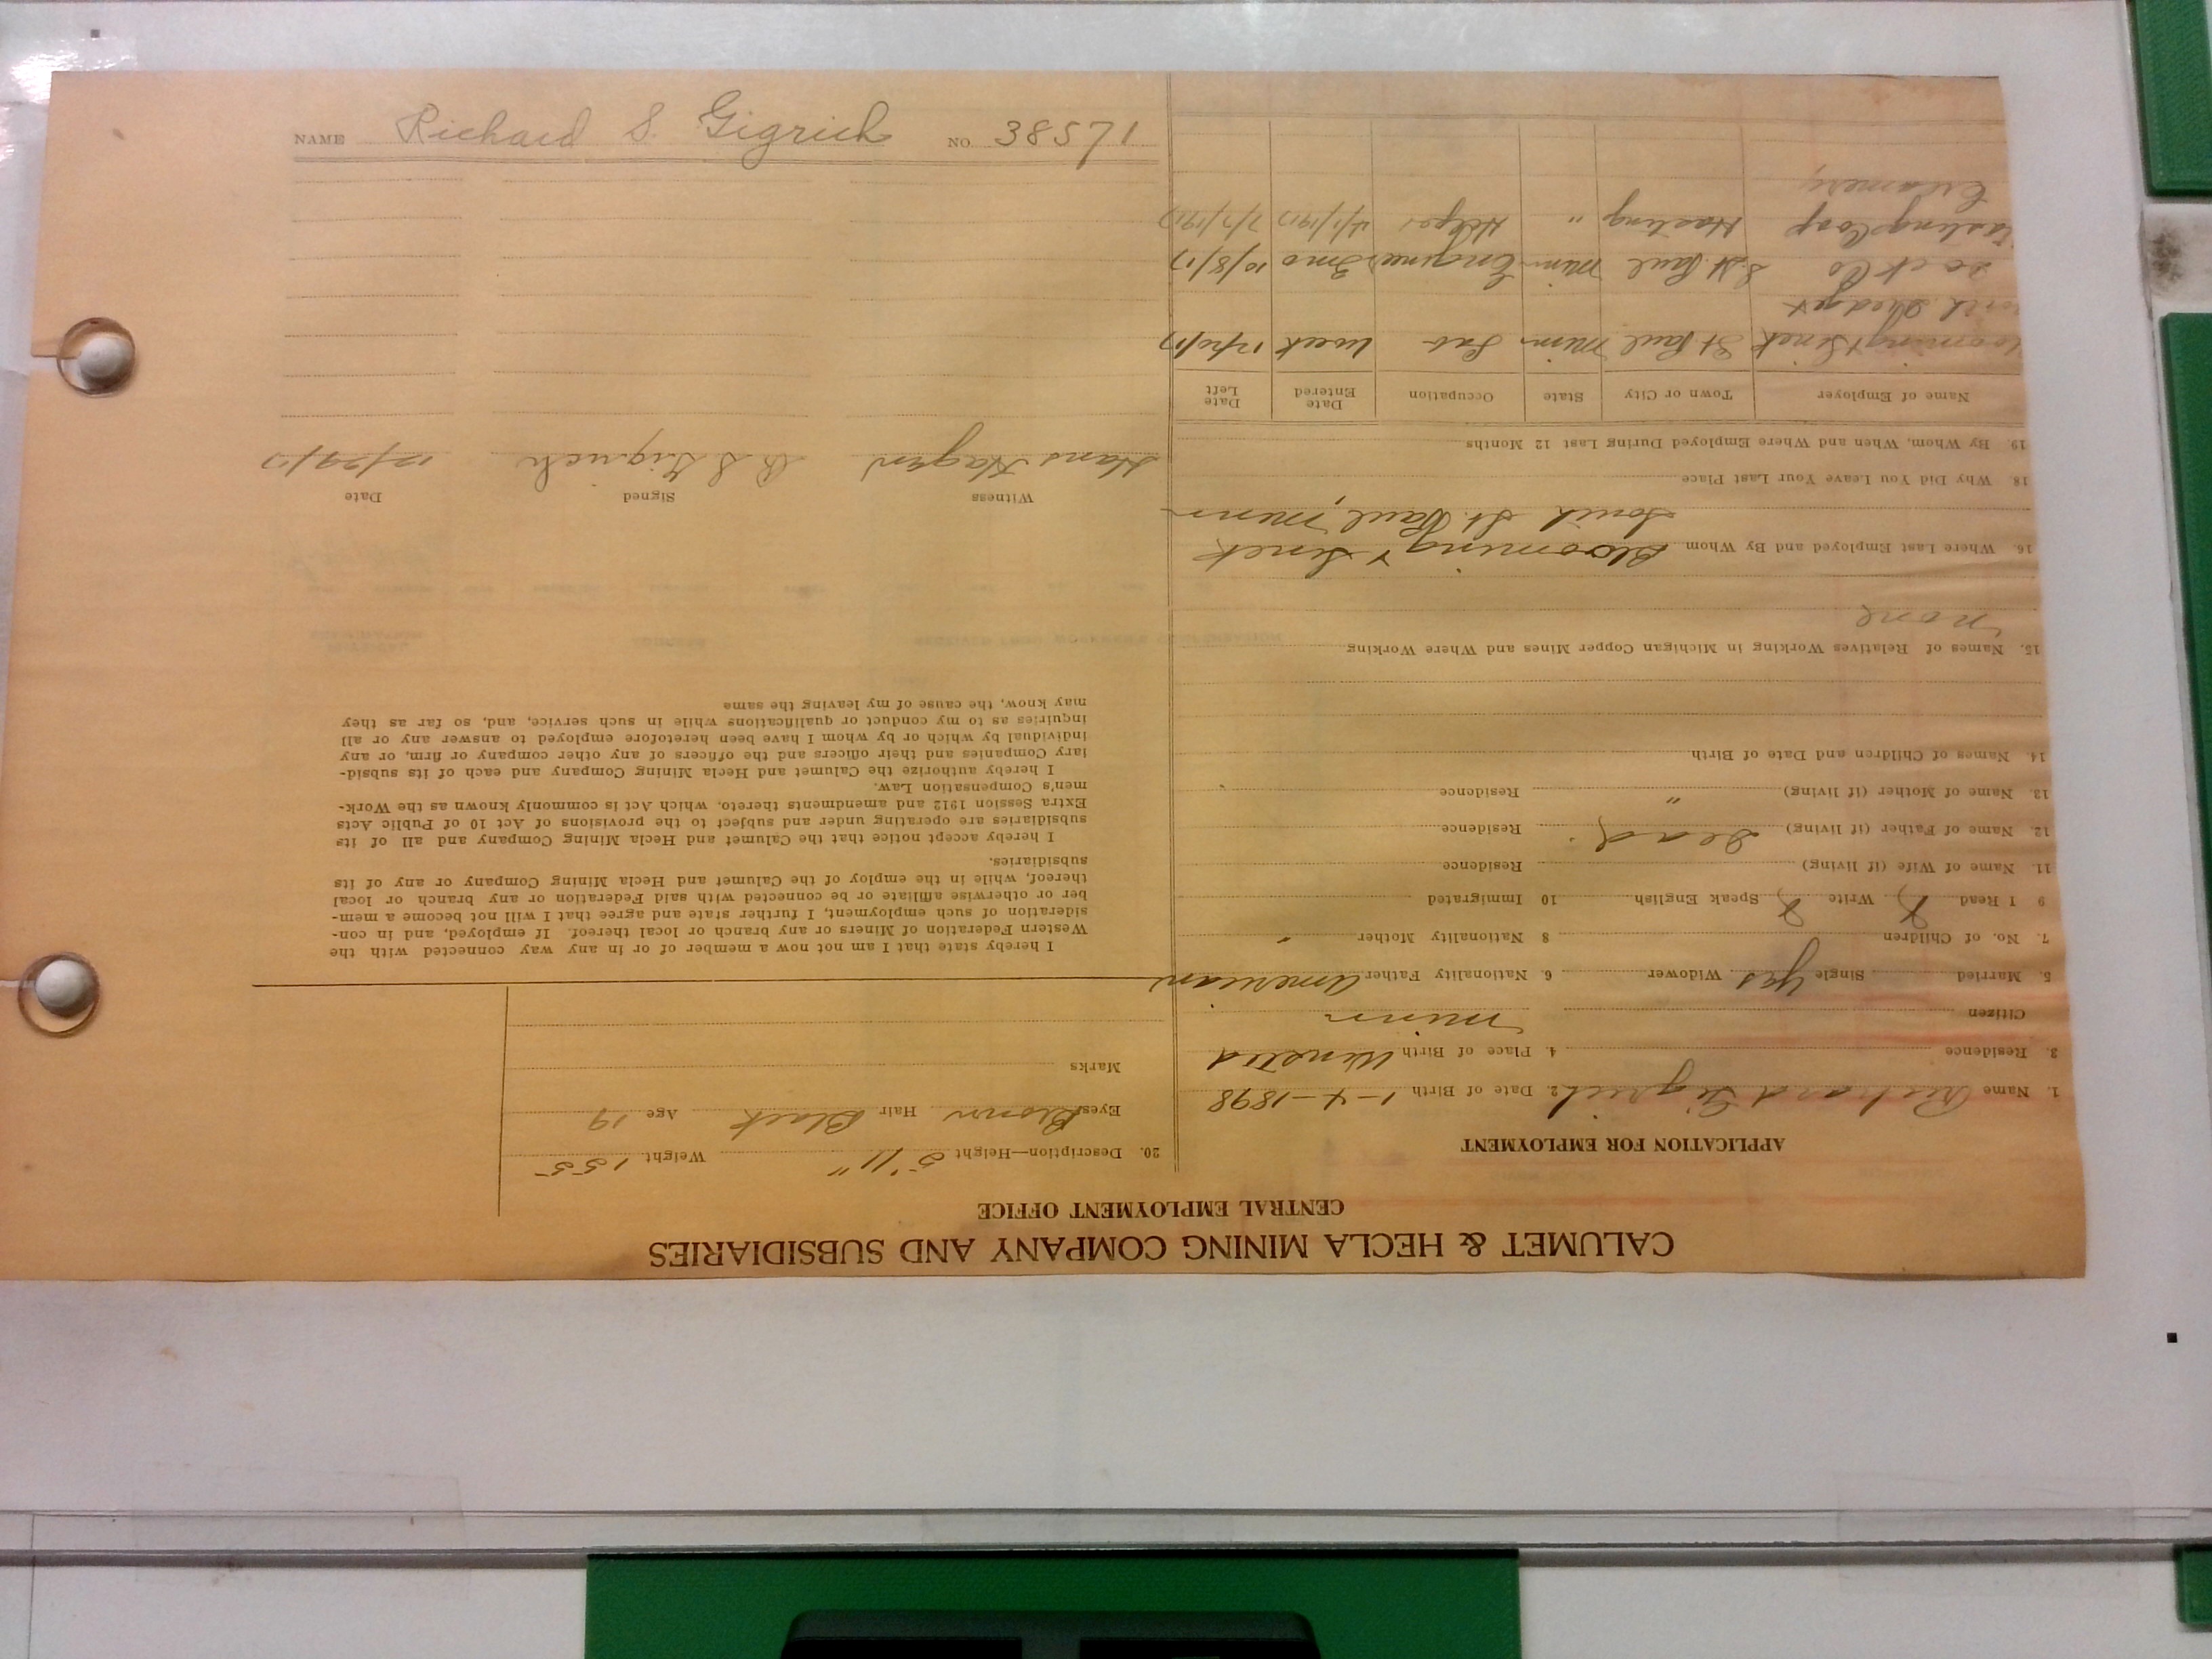 NAME Richard S. Gigrich NO. 38571
CALUMET & HECLA MINING COMPANY AND SUBSIDIARIES
CENTRAL EMPLOYMENT OFFICE
APPLICATION FOR EMPLOYMENT
1. Name Richard Gigrich 2. Date of Birth 1-4-1898
3. Residence 4. Place of Birth Winsted
Citizen Minn
5. Married Single Yes Widower 6. Nationality Father American
7. No. of Children 8 Nationality Mother "
9 I Read Write Speak English 10 Immigrated
11. Name of Wife (if living) Residence
12. Name of Father (if living) Dead Residence
13. Name of Mother (if living) " Residence
14. Names of Children and Date of Birth
15. Names of Relatives Working in Michigan Copper Mines and Where Working
none
16. Where Last Employed and By Whom Blooming
South St. Paul, Minn
18. Why Did You Leave Your Last Place
19. By Whom, When and Where Employed During Last 12 Months
Name of Employer Town or City State Occupation Date Entered Date Left
St Paul Minn Lab week
S. St. Paul Minn 3mo 10/8/17
Coop Hasting " Helper
20. Description—Height 5'11" Weight 155
Eyes Brown Hair Black Age 19
Marks
I hereby state that I am not now a member of or in any way connected with the
Western Federation of Miners or any branch or local thereof. If employed, and in con-
sideration of such employment, I further state and agree that I will not become a mem-
ber or otherwise affiliate or be connected with said Federation or any branch or local
thereof, while in the employ of the Calumet and Hecla Mining Company or any of its
subsidiaries.
I hereby accept notice that the Calumet and Hecla Mining Company and all of its
subsidiaries are operating under and subject to the provisions of Act 10 of Public Acts
Extra Session 1912 and amendments thereto, which Act is commonly known as the Work-
men's Compensation Law.
I hereby authorize the Calumet and Hecla Mining Company and each of its subsid-
iary Companies and their officers and the officers of any other company or firm, or any
individual by which or by whom I have been heretofore employed to answer any or all
inquiries as to my conduct or qualifications while in such service, and, so far as they
may know, the cause of my leaving the same
Witness Signed Date
Hans Hagen R S Gigrich 12/29/17